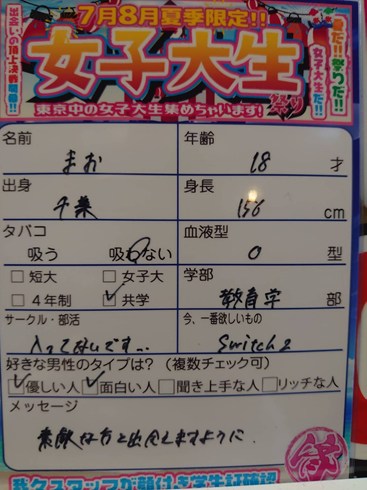 出会いの頂上決戦開幕!!
7月8月夏季限定!!
夏だ!!祭りだ!!
女子大生だ!!
女子大生
祭り
東京中の女子大生集めちゃいます!
名前
まお
年齢
18 才
出身
千葉
身長
156 cm
タバコ
吸う 吸わない
血液型
O 型
短大 女子大
4年制 共学
学部
教育学 部
サークル・部活
入ってないです…
今、一番欲しいもの
Switch2
好きな男性のタイプは?(複数チェック可)
優しい人 面白い人 聞き上手な人 リッチな人
メッセージ
素敵な方と出会えますように.